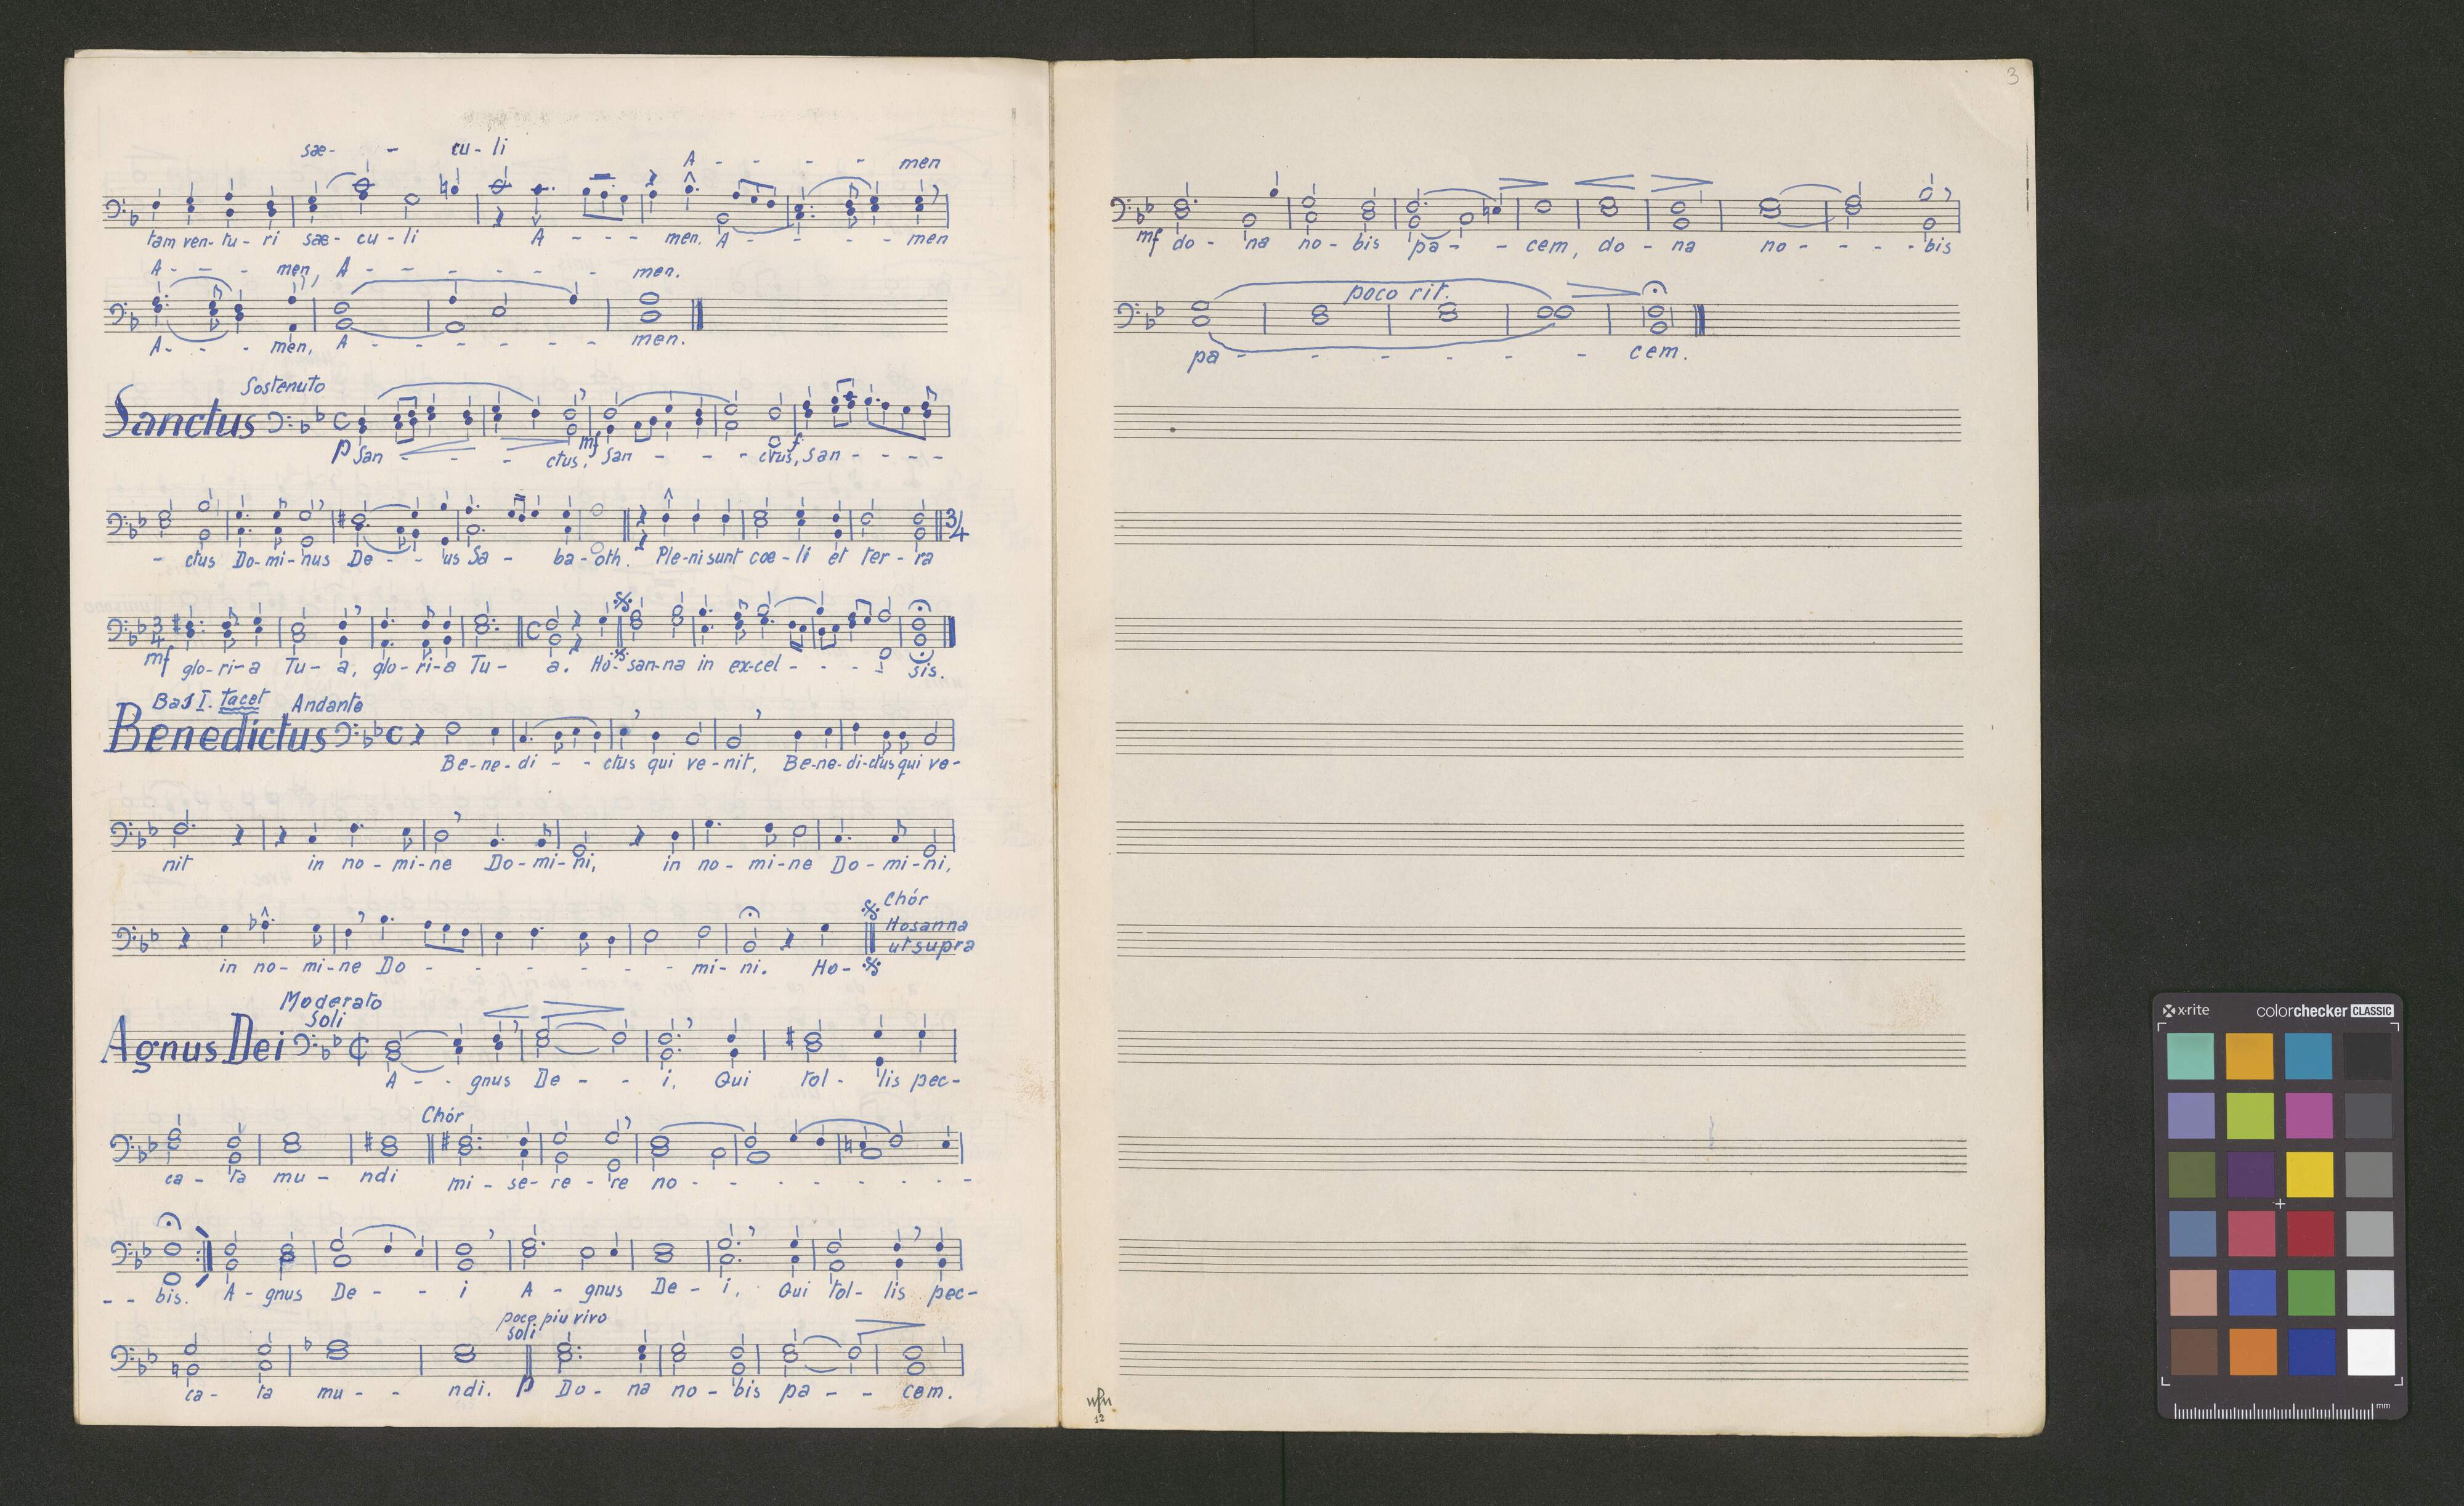 sae- - cu-li A - - - - men
tam ven-tu-ri sae-cu-li A - - - men. A - - - - men
A - - - men, A - - - - - - men.
A - - - men, A - - - - - - men.
Sostenuto
Sanctus C
p San - - - ctus, mf San - - - ctus, f san - - - -
- ctus Do-mi-nus De - - us Sa - ba-oth. Ple-ni sunt coe-li et ter-ra 3/4
3/4 C
mf glo-ri-a Tu-a, glo-ri-a Tu-a. Ho-san-na in ex-cel - - - - sis.
Bas I. tacet Andante
Benedictus C
Be-ne-di - - ctus qui ve-nit, Be-ne-di-ctus qui ve-
nit in no-mi-ne Do-mi-ni, in no-mi-ne Do-mi-ni,
Chór
Hosanna
ut supra
in no-mi-ne Do - - - - - - mi-ni. Ho-
Moderato
Soli
Agnus Dei
A - - gnus De - - i, Qui tol - lis pec-
Chór
ca - ta mu - ndi mi-se-re-re no - - - - - - - -
- - bis. A-gnus De - - i A-gnus De-i, Qui tol-lis pec-
poco piu vivo
soli
ca-ta mu - - ndi. p Do-na no-bis pa - - cem.
3
mf do - na no-bis pa - - cem, do-na no - - - - bis
poco rit.
pa - - - - - - cem.
12
x-rite colorchecker CLASSIC
mm